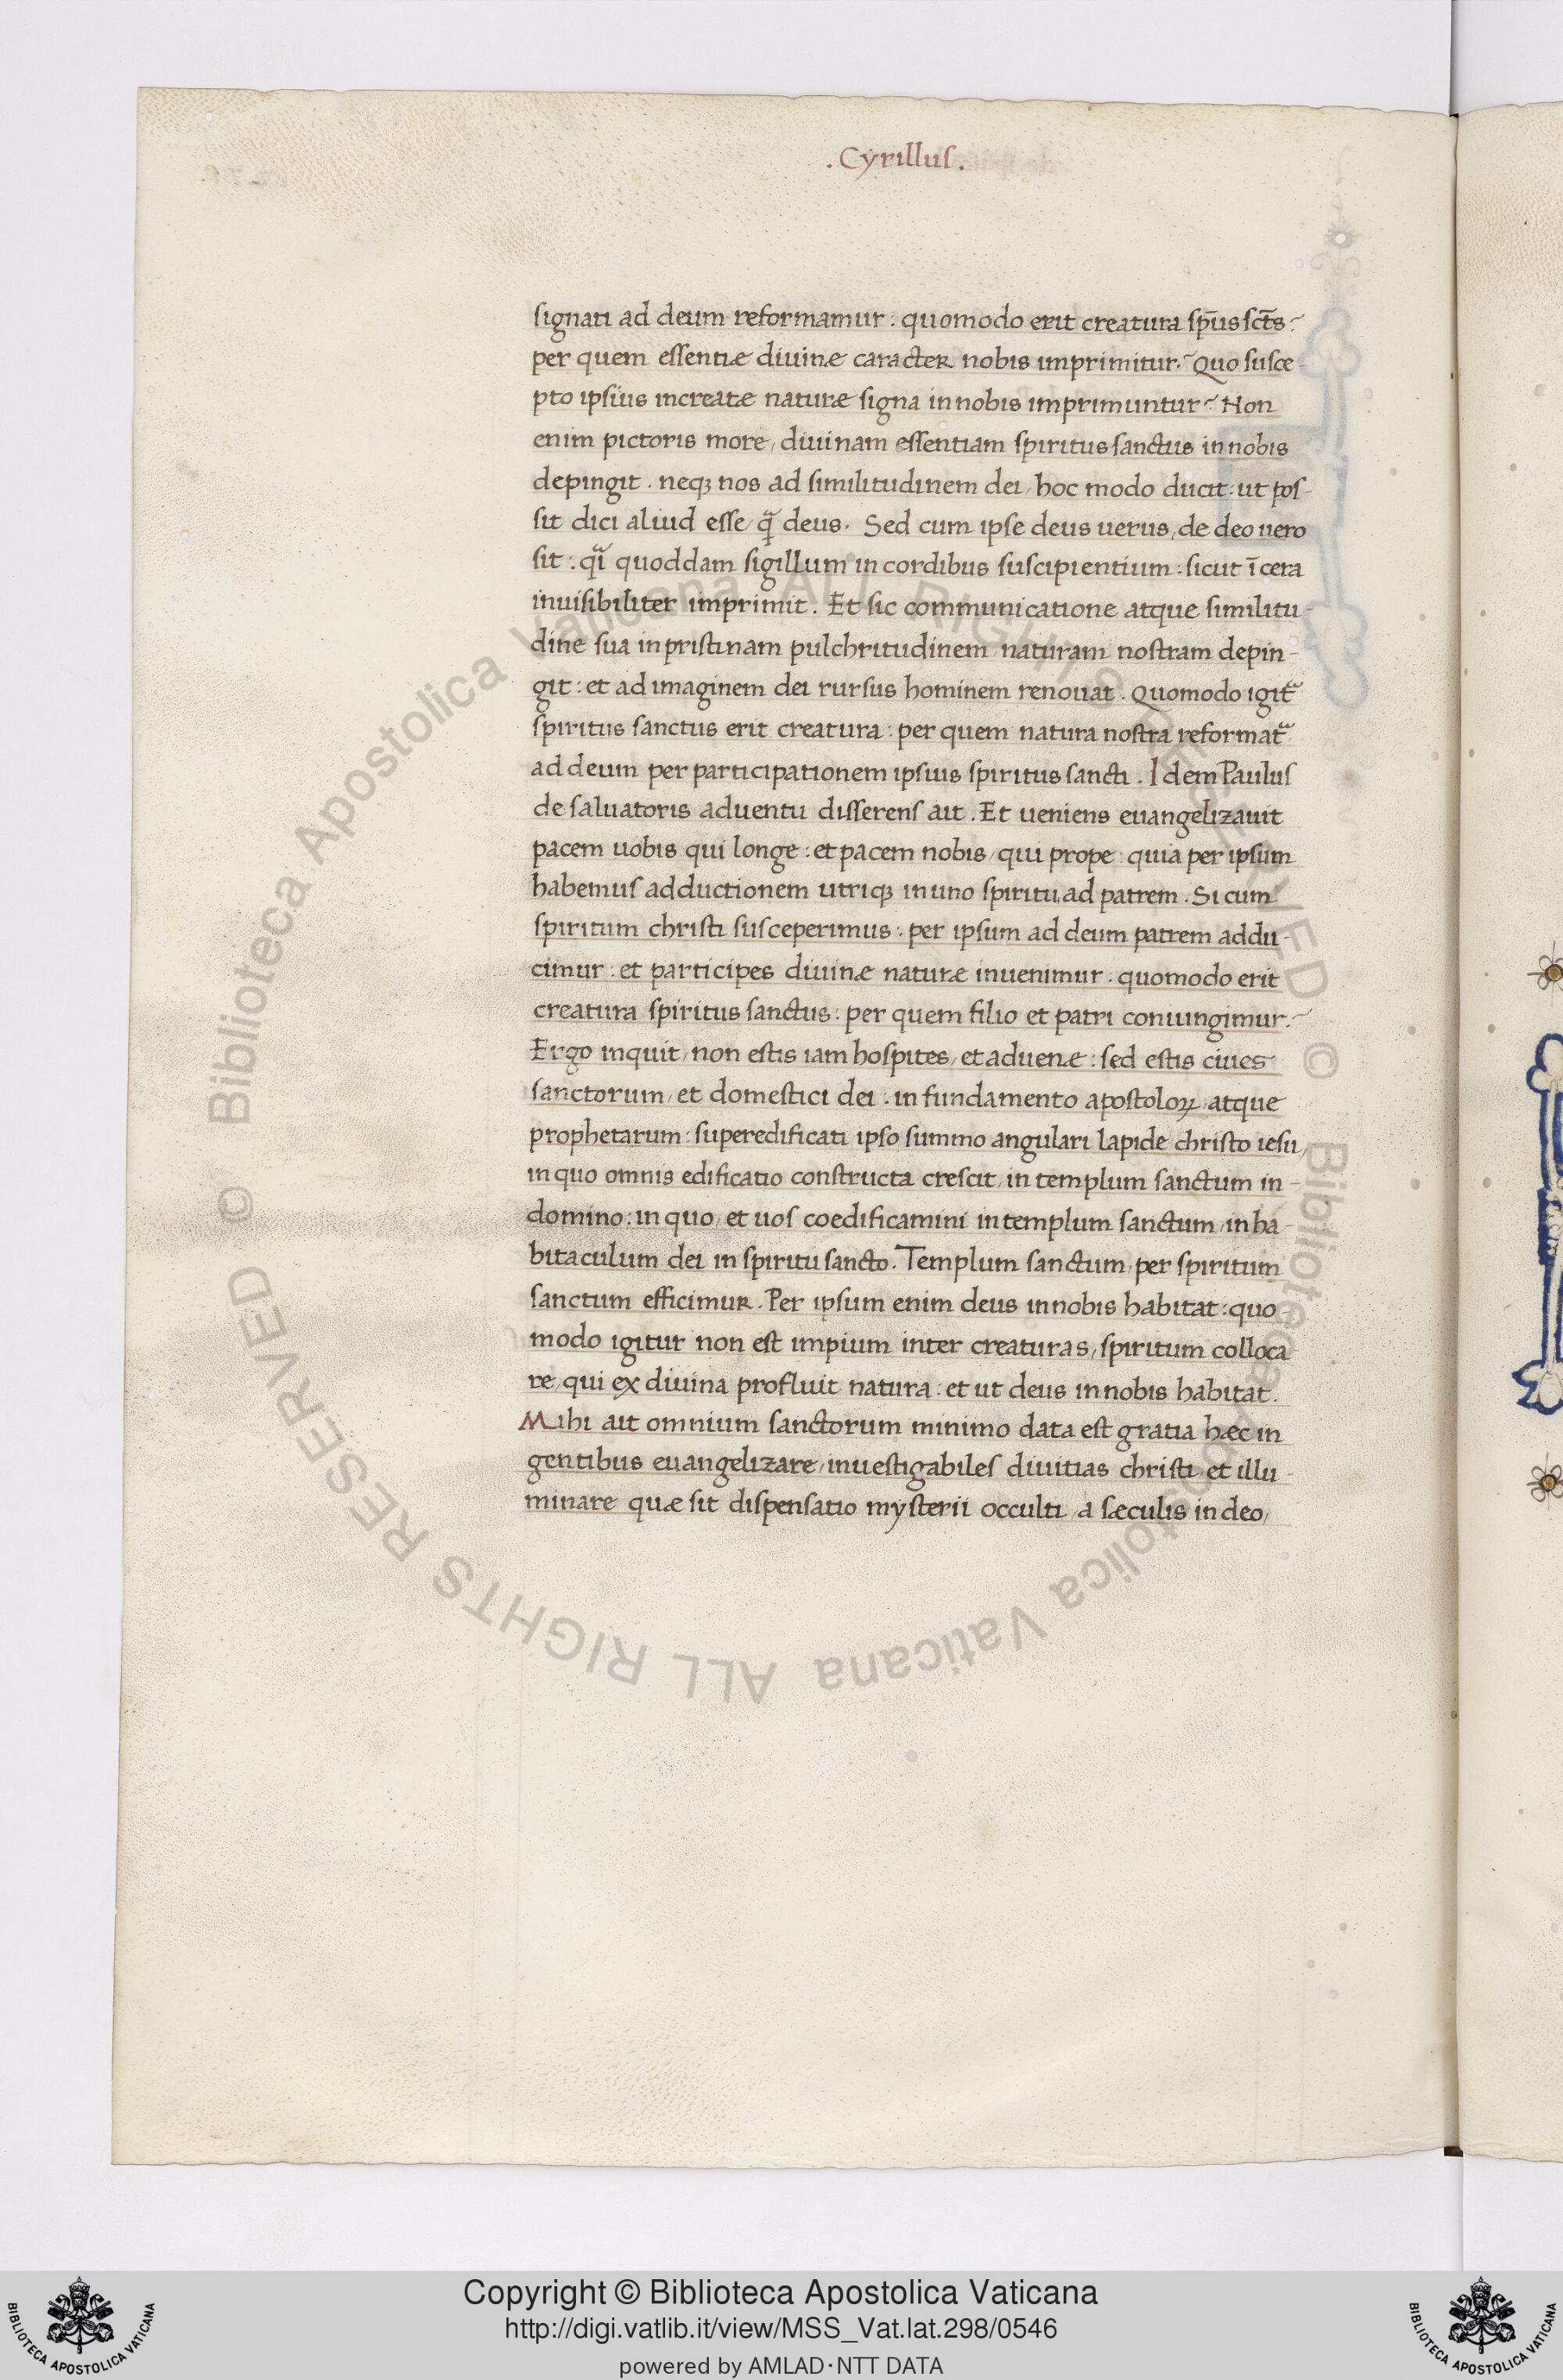 .Cyrillus.
signati ad deum reformamur: quomodo erit creatura sp̄us sct̄s?
per quem essentiæ diuinæ caracter nobis imprimitur? Quo susce-
pto ipsius increatæ naturæ signa in nobis imprimuntur? Non
enim pictoris more, diuinam essentiam spiritus sanctus in nobis
depingit. neqꝫ nos ad similitudinem dei, hoc modo ducit: ut pos-
sit dici aliud esse, qᷓ deus. Sed cum ipse deus uerus, de deo uero
sit: qᷓi quoddam sigillum in cordibus suscipientium: sicut ī cera
inuisibiliter imprimit. Et sic communicatione atque similitu-
dine sua in pristinam pulchritudinem, naturam nostram depin-
git: et ad imaginem dei rursus hominem renouat. Quomodo igitᷣ
spiritus sanctus erit creatura: per quem natura nostra reformatᷣ
ad deum per participationem ipsius spiritus sancti. Idem Paulus
de saluatoris aduentu disserens ait. Et ueniens euangelizauit
pacem uobis qui longe: et pacem nobis, qui prope: quia per ipsum
habemus adductionem utriqꝫ in uno spiritu, ad patrem. Si cum
spiritum christi susceperimus: per ipsum ad deum patrem addu-
cimur: et participes diuinæ naturæ inuenimur: quomodo erit
creatura spiritus sanctus: per quem filio et patri coniungimur?
Ergo inquit, non estis iam hospites, et aduenæ: sed estis ciues
sanctorum, et domestici dei: in fundamento apostoloꝝ, atque
prophetarum: superedificati ipso summo angulari lapide christo iesu,
in quo omnis edificatio constructa crescit, in templum sanctum in-
domino: in quo, et uos coedificamini in templum sanctum, in ha-
bitaculum dei in spiritu sancto. Templum sanctum, per spiritum
sanctum efficimur. Per ipsum enim deus in nobis habitat: quo
modo igitur non est impium inter creaturas, spiritum colloca
re, qui ex diuina profluit natura: et ut deus in nobis habitat.
Mihi ait omnium sanctorum minimo data est gratia hæc in
gentibus euangelizare, inuestigabiles diuitias christi, et illu-
minare quæ sit dispensatio mysterii occulti, a sæculis in deo,
© Biblioteca Apostolica Vaticana ALL RIGHTS RESERVED © Biblioteca Apostolica Vaticana ALL RIGHTS RESERVED
Copyright © Biblioteca Apostolica Vaticana
http://digi.vatlib.it/view/MSS_Vat.lat.298/0546
powered by AMLAD·NTT DATA
BIBLIOTECA APOSTOLICA VATICANA
BIBLIOTECA APOSTOLICA VATICANA